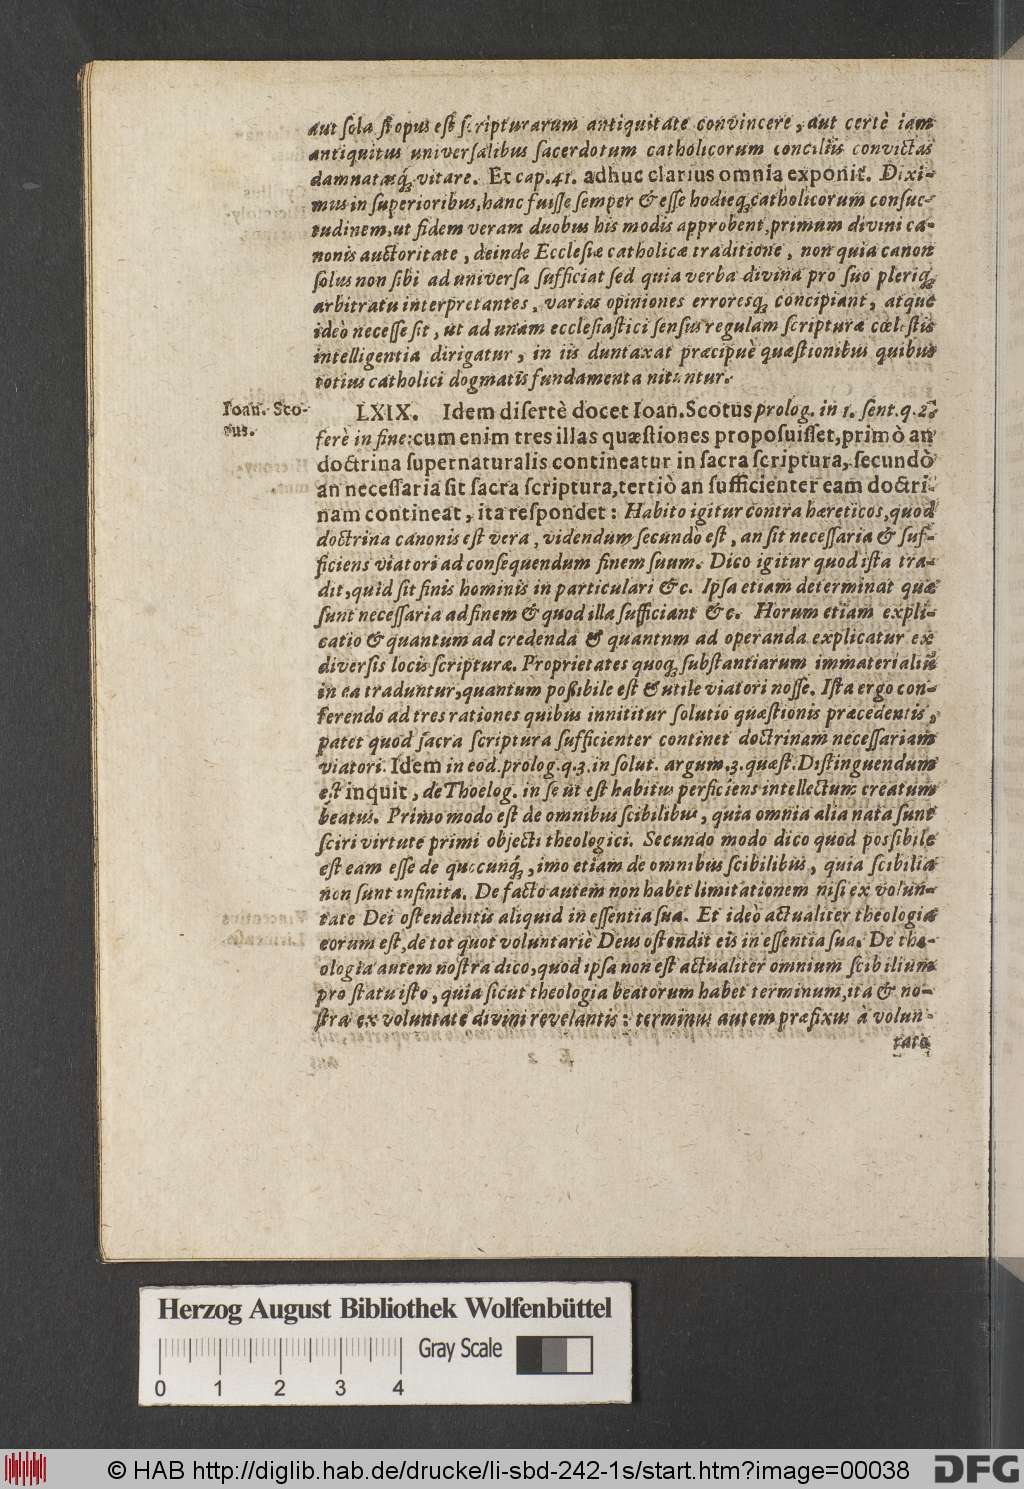 aut sola si opus est scripturarum antiquitate convincere, aut certè iam
antiquitus universalibus sacerdotum catholicorum conciliis convictas
damnatasq́; vitare. Et cap. 41. adhuc clarius omnia exponit. Dixi-
mus in superioribus, hanc fuisse semper & esse hodieq́; catholicorum consue-
tudinem, ut fidem veram duobus his modis approbent, primum divini ca-
nonis auctoritate, deinde Ecclesiæ catholicæ traditione, non quia canon
solus non sibi ad universa sufficiat sed quia verba divina pro suo pleriq́;
arbitratu interpretantes, varias opiniones erroresq́; concipiant, atque
ideò necesse sit, ut ad unam ecclesiastici sensus regulam scripturæ cœlestis
intelligentia dirigatur, in iis duntaxat præcipuè quæstionibus quibus
totius catholici dogmatis fundamenta nituntur.
Ioan. Sco-
tus.
LXIX. Idem disertè docet Ioan. Scotus prolog. in 1. sent. q. 2.
ferè in fine: cum enim tres illas quæstiones proposuisset, primò an
doctrina supernaturalis contineatur in sacra scriptura, secundò
an necessaria sit sacra scriptura, tertiò an sufficienter eam doctri-
nam contineat, ita respondet: Habito igitur contra hæreticos, quod
doctrina canonis est vera, videndum secundò est, an sit necessaria & suf-
ficiens viatori ad consequendum finem suum. Dico igitur quod ista tra-
dit, quid sit finis hominis in particulari &c. Ipsa etiam determinat quæ
sunt necessaria ad finem & quod illa sufficiant &c. Horum etiam expli-
catio & quantum ad credenda & quantnm ad operanda explicatur ex
diversis locis scripturæ. Proprietates quoq́; substantiarum immaterialiũ
in ea traduntur, quantum possibile est & utile viatori nosse. Ista ergo con-
ferendo ad tres rationes quibus innititur solutio quæstionis præcedentis,
patet quod sacra scriptura sufficienter continet doctrinam necessariam
viatori. Idem in eod. prolog. q. 3. in solut. argum. 3. quæst. Distinguendum
est inquit, de Thoelog. in se ut est habitus perficiens intellectum creatum
beatus. Primo modo est de omnibus scibilibus, quia omnia alia nata sunt
sciri virtute primi objecti theologici. Secundo modo dico quod possibile
est eam esse de quocunq́;, imo etiam de omnibus scibilibus, quia scibilia
non sunt infinita. De facto autem non habet limitationem nisi ex volun-
tate Dei ostendentis aliquid in essentia sua. Et ideò actualiter theologia
eorum est, de tot quot voluntariè Deus ostendit eis in essentia sua. De the-
ologia autem nostra dico, quod ipsa non est actualiter omnium scibilium
pro statu isto, quia sicut theologia beatorum habet terminum, ita & no-
stra ex voluntate divini revelantis: terminus autem præfixus à volun-
tate
Herzog August Bibliothek Wolfenbüttel
Gray Scale
0 1 2 3 4
© HAB http://diglib.hab.de/drucke/li-sbd-242-1s/start.htm?image=00038
DFG